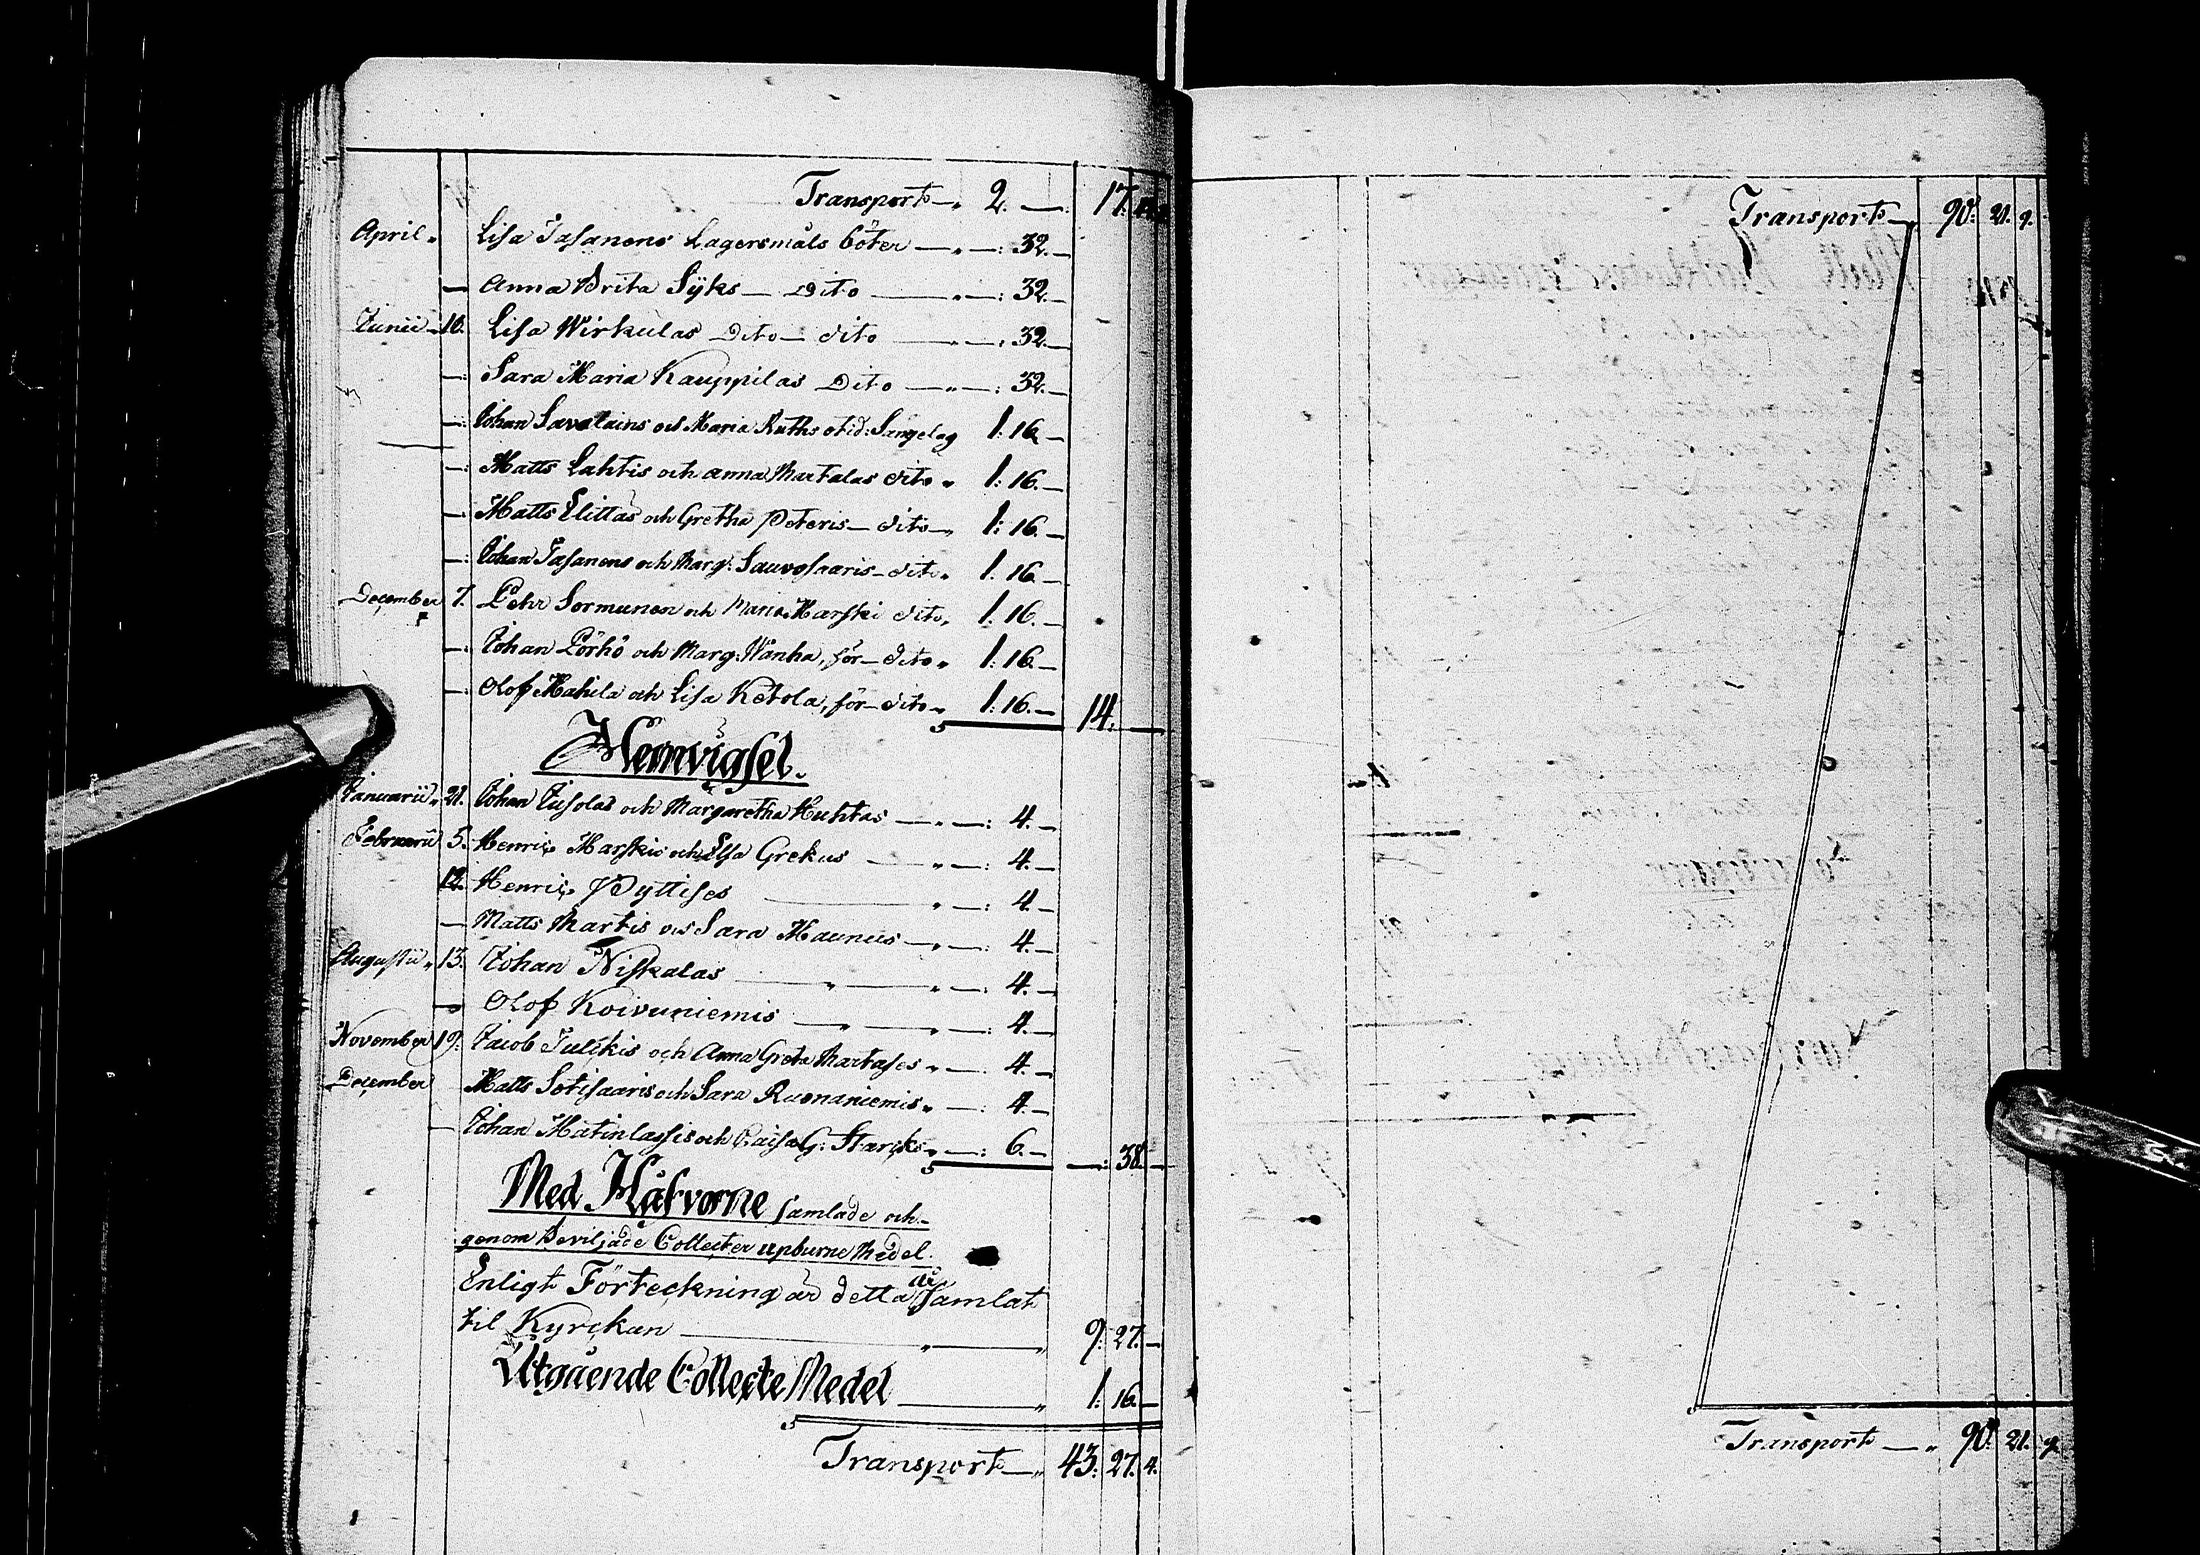 Transport 2. — 17.
April Lisa Jasanens Lägersmåls böter — 32. —
— Anna Brita Syks — Dito — 32. —
Junii 10. Lisa Wirkulas Dito — dito — 32. —
— Sara Maria Kauppilas Dito — 32. —
— Johan Savalains och Maria Ruths otid: Sängelag 1: 16. —
— Matts Lahtis och Anna Martalas dito 1: 16. —
— Matts Elittas och Gretha Peteris — dito — 1: 16. —
— Johan Jasanens och Marg: Sauvosaaris — dito 1: 16. —
December 7. Pehr Sormunen och Maria Marski dito 1: 16. —
— Johan Pörhö och Marg: Wänha, för — dito 1: 16. —
— Olof Mahila och Lisa Ketola, för — dito 1: 16. — 14. —
Hemvigsel.
Januarii 21. Johan Jusolas och Margaretha Huhtas — 4. —
Februarii 5. Henric Marskis och Elsa Grekus — 4. —
12. Henric Pyttises — 4. —
— Matts Martis och Sara Maunus — 4. —
Augusti 13. Johan Niskalas — 4. —
— Olof Koivuniemis — 4. —
November 19. Jacob Julkis och Anna Greta Martases — 4. —
December Matts Sotisaaris och Sara Ruonaniemis — 4. —
— Johan Matinlassis och Caisa G: Starcks — 6. — — 38. —
Med Håfvarne samlade och
genom Beviljade Collecter upburne Medel.
Enligt Förteckning är detta år samlat
til Kyrckan — 9: 27. —
Utgående Collecte Medel — 1: 16. —
Transport 43: 27. 4.
Transport 90. 21. 9.
Transport 90. 21. 9.